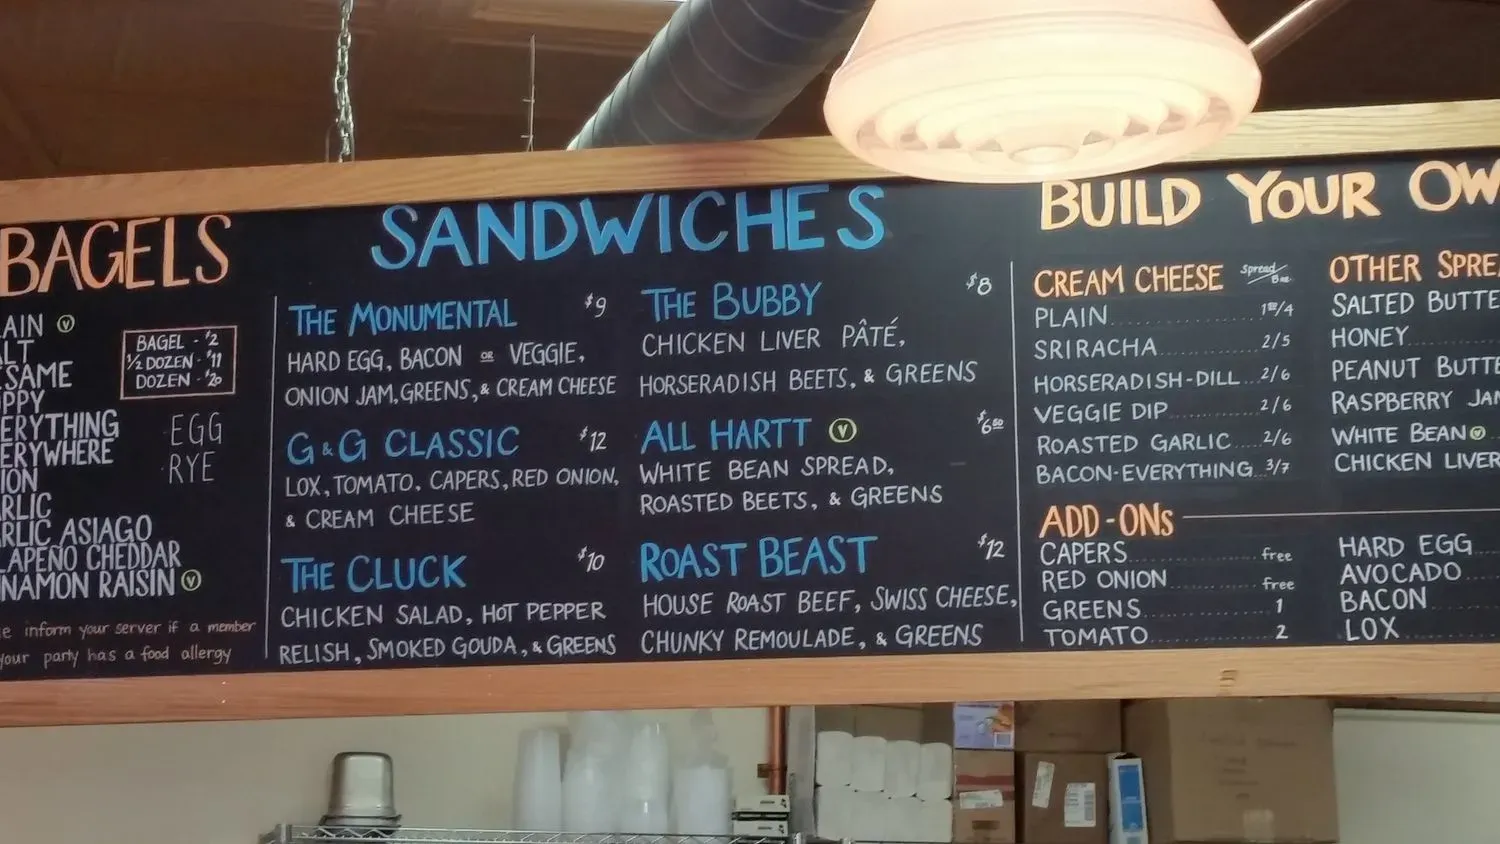 BAGELS
AIN Ⓥ
ALT
ESAME
OPPY
ERYTHING
ERYWHERE
ION
ARLIC
ARLIC ASIAGO
LAPEÑO CHEDDAR
NNAMON RAISIN Ⓥ
BAGEL - $2
½ DOZEN - $11
DOZEN - $20
EGG
RYE
e inform your server if a member
your party has a food allergy
SANDWICHES
THE MONUMENTAL $9
HARD EGG, BACON OR VEGGIE,
ONION JAM, GREENS, & CREAM CHEESE
G&G CLASSIC $12
LOX, TOMATO, CAPERS, RED ONION,
& CREAM CHEESE
THE CLUCK $10
CHICKEN SALAD, HOT PEPPER
RELISH, SMOKED GOUDA, & GREENS
THE BUBBY $8
CHICKEN LIVER PÂTÉ,
HORSERADISH BEETS, & GREENS
ALL HARTT Ⓥ $6.50
WHITE BEAN SPREAD,
ROASTED BEETS, & GREENS
ROAST BEAST $12
HOUSE ROAST BEEF, SWISS CHEESE,
CHUNKY REMOULADE, & GREENS
BUILD YOUR OW
CREAM CHEESE Spread/
PLAIN 1 50/4
SRIRACHA 2/5
HORSERADISH-DILL 2/6
VEGGIE DIP 2/6
ROASTED GARLIC 2/6
BACON-EVERYTHING 3/7
OTHER SPRE
SALTED BUTTE
HONEY
PEANUT BUTTE
RASPBERRY JA
WHITE BEAN Ⓥ
CHICKEN LIVER
ADD-ONs
CAPERS free
RED ONION free
GREENS 1
TOMATO 2
HARD EGG
AVOCADO
BACON
LOX